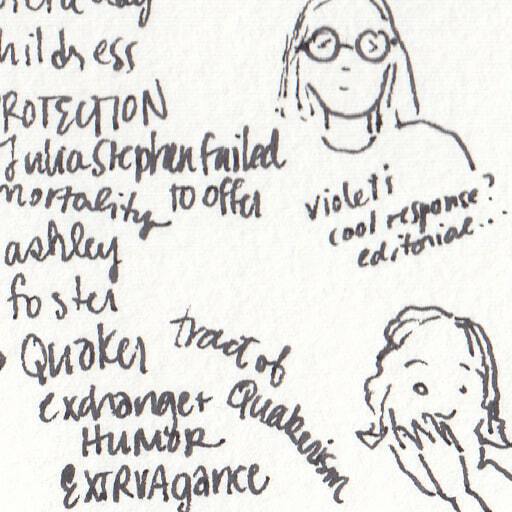 childress
PROTECTION
Julia Stephen failed
to offer
mortality
ashley
foster
Quaker
exchanger
HUMOR
EXTRVAgance
tract of
Quakerism
violeti
cool response?
editorial...